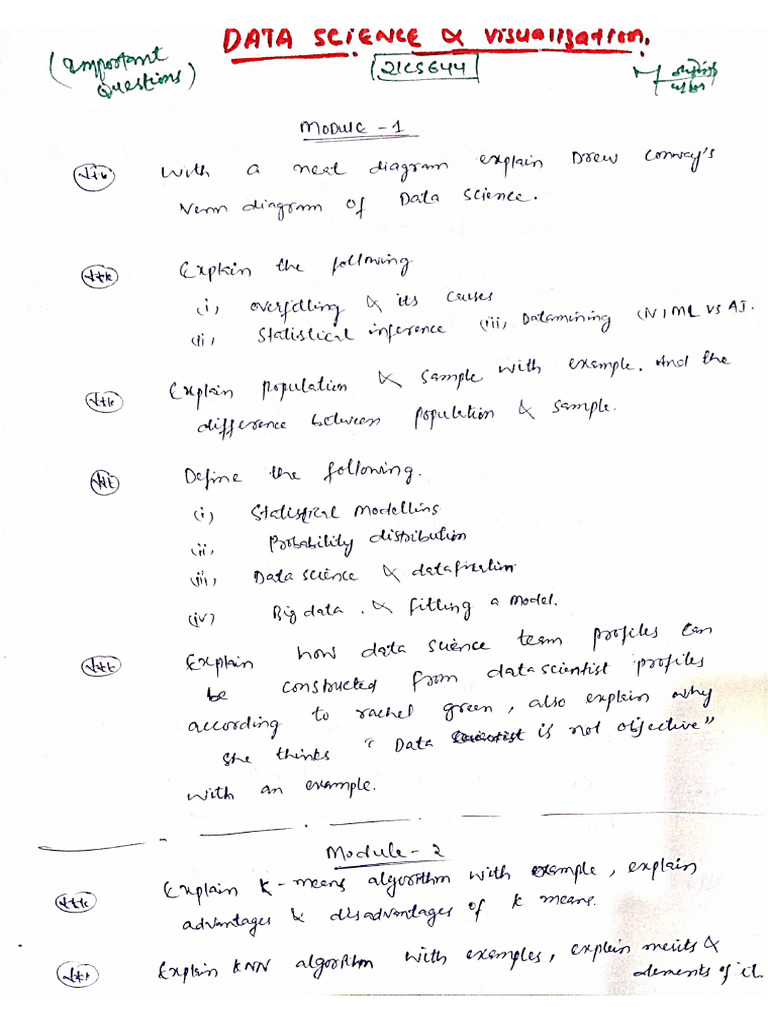 DATA SCIENCE & Visualization.
(Important Questions)
21CS644
Module - 1
With a neat diagram explain Drew Conway's
Venn diagram of Data Science.
Explain the following
(i) overfitting & its causes
(ii) Statistical inference (iii) Datamining (iv) ML vs AI.
Explain population & sample with example. And the
difference between population & sample.
Define the following.
(i) Statistical Modelling
(ii) Probability distribution
(iii) Data science & datafication
(iv) Big data . & fitting a model.
Explain how data science team profiles can
be constructed from data scientist profiles
according to rachel green, also explain why
she thinks "Data Scientist is not objective"
with an example.
Module - 2
Explain K-means algorithm with example, explain
advantages & disadvantages of K means.
Explain KNN algorithm with examples, explain merits &
demerits of it.